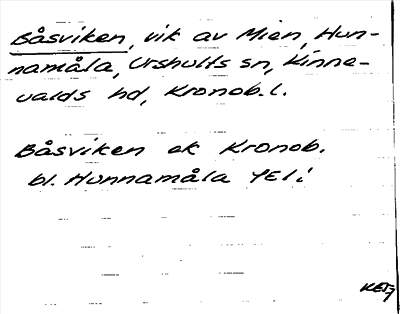 Båsviken, vik av Mien, Hun-
namåla, Urshults sn, Kinne-
valds hd, Kronob. l.
Båsviken ek Kronob.
bl. Hunnamåla